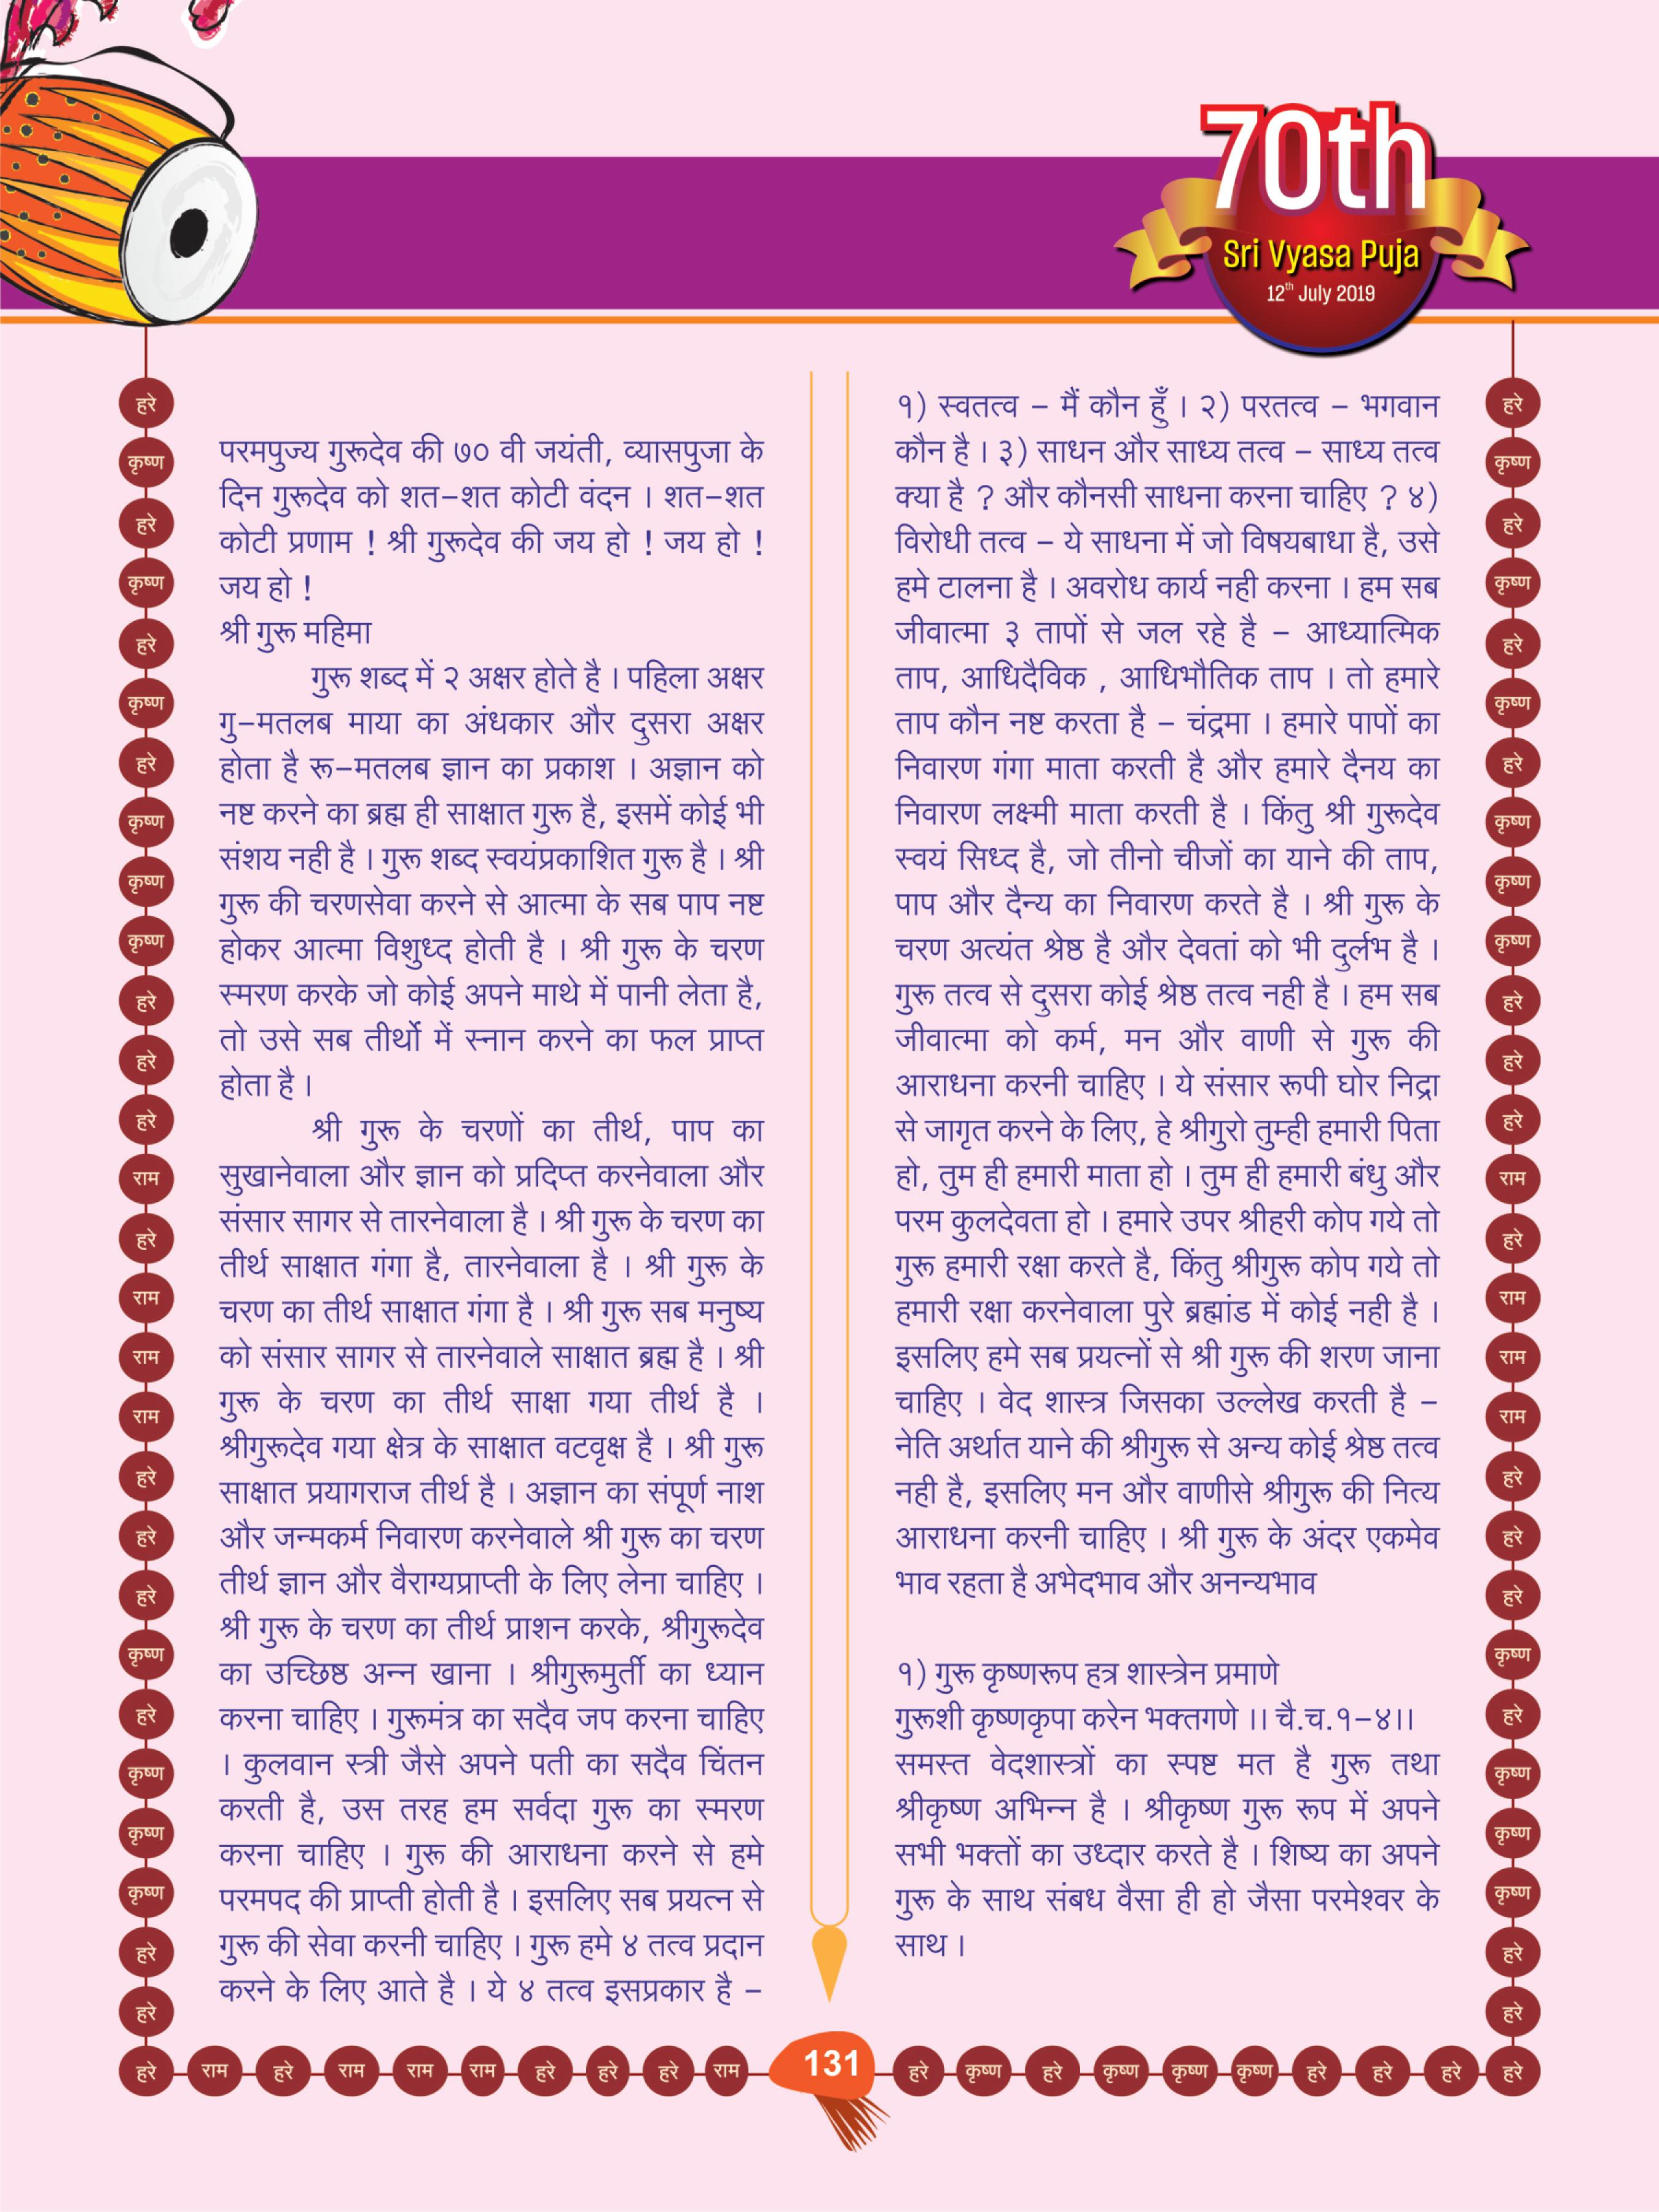 70th
Sri Vyasa Puja
12th July 2019
परमपुज्य गुरूदेव की ७० वी जयंती, व्यासपुजा के
दिन गुरूदेव को शत–शत कोटी वंदन । शत–शत
कोटी प्रणाम ! श्री गुरूदेव की जय हो ! जय हो !
जय हो !
श्री गुरू महिमा
गुरू शब्द में २ अक्षर होते है । पहिला अक्षर
गु–मतलब माया का अंधकार और दुसरा अक्षर
होता है रू–मतलब ज्ञान का प्रकाश । अज्ञान को
नष्ट करने का ब्रह्म ही साक्षात गुरू है, इसमें कोई भी
संशय नही है । गुरू शब्द स्वयंप्रकाशित गुरू है । श्री
गुरू की चरणसेवा करने से आत्मा के सब पाप नष्ट
होकर आत्मा विशुध्द होती है । श्री गुरू के चरण
स्मरण करके जो कोई अपने माथे में पानी लेता है,
तो उसे सब तीर्थो में स्नान करने का फल प्राप्त
होता है ।
श्री गुरू के चरणों का तीर्थ, पाप का
सुखानेवाला और ज्ञान को प्रदिप्त करनेवाला और
संसार सागर से तारनेवाला है । श्री गुरू के चरण का
तीर्थ साक्षात गंगा है, तारनेवाला है । श्री गुरू के
चरण का तीर्थ साक्षात गंगा है । श्री गुरू सब मनुष्य
को संसार सागर से तारनेवाले साक्षात ब्रह्म है । श्री
गुरू के चरण का तीर्थ साक्षा गया तीर्थ है ।
श्रीगुरूदेव गया क्षेत्र के साक्षात वटवृक्ष है । श्री गुरू
साक्षात प्रयागराज तीर्थ है । अज्ञान का संपूर्ण नाश
और जन्मकर्म निवारण करनेवाले श्री गुरू का चरण
तीर्थ ज्ञान और वैराग्यप्राप्ती के लिए लेना चाहिए ।
श्री गुरू के चरण का तीर्थ प्राशन करके, श्रीगुरूदेव
का उच्छिष्ठ अन्न खाना । श्रीगुरूमुर्ती का ध्यान
करना चाहिए । गुरूमंत्र का सदैव जप करना चाहिए
। कुलवान स्त्री जैसे अपने पती का सदैव चिंतन
करती है, उस तरह हम सर्वदा गुरू का स्मरण
करना चाहिए । गुरू की आराधना करने से हमे
परमपद की प्राप्ती होती है । इसलिए सब प्रयत्न से
गुरू की सेवा करनी चाहिए । गुरू हमे ४ तत्व प्रदान
करने के लिए आते है । ये ४ तत्व इसप्रकार है –
१) स्वतत्व – मैं कौन हुँ । २) परतत्व – भगवान
कौन है । ३) साधन और साध्य तत्व – साध्य तत्व
क्या है ? और कौनसी साधना करना चाहिए ? ४)
विरोधी तत्व – ये साधना में जो विषयबाधा है, उसे
हमे टालना है । अवरोध कार्य नही करना । हम सब
जीवात्मा ३ तापों से जल रहे है – आध्यात्मिक
ताप, आधिदैविक , आधिभौतिक ताप । तो हमारे
ताप कौन नष्ट करता है – चंद्रमा । हमारे पापों का
निवारण गंगा माता करती है और हमारे दैनय का
निवारण लक्ष्मी माता करती है । किंतु श्री गुरूदेव
स्वयं सिध्द है, जो तीनो चीजों का याने की ताप,
पाप और दैन्य का निवारण करते है । श्री गुरू के
चरण अत्यंत श्रेष्ठ है और देवतां को भी दुर्लभ है ।
गुरू तत्व से दुसरा कोई श्रेष्ठ तत्व नही है । हम सब
जीवात्मा को कर्म, मन और वाणी से गुरू की
आराधना करनी चाहिए । ये संसार रूपी घोर निद्रा
से जागृत करने के लिए, हे श्रीगुरो तुम्ही हमारी पिता
हो, तुम ही हमारी माता हो । तुम ही हमारी बंधु और
परम कुलदेवता हो । हमारे उपर श्रीहरी कोप गये तो
गुरू हमारी रक्षा करते है, किंतु श्रीगुरू कोप गये तो
हमारी रक्षा करनेवाला पुरे ब्रह्मांड में कोई नही है ।
इसलिए हमे सब प्रयत्नों से श्री गुरू की शरण जाना
चाहिए । वेद शास्त्र जिसका उल्लेख करती है –
नेति अर्थात याने की श्रीगुरू से अन्य कोई श्रेष्ठ तत्व
नही है, इसलिए मन और वाणीसे श्रीगुरू की नित्य
आराधना करनी चाहिए । श्री गुरू के अंदर एकमेव
भाव रहता है अभेदभाव और अनन्यभाव
१) गुरू कृष्णरूप हत्र शास्त्रेन प्रमाणे
गुरूशी कृष्णकृपा करेन भक्तगणे ।। चै.च.१–४।।
समस्त वेदशास्त्रों का स्पष्ट मत है गुरू तथा
श्रीकृष्ण अभिन्न है । श्रीकृष्ण गुरू रूप में अपने
सभी भक्तों का उध्दार करते है । शिष्य का अपने
गुरू के साथ संबध वैसा ही हो जैसा परमेश्वर के
साथ ।
हरे
कृष्ण
हरे
कृष्ण
हरे
कृष्ण
हरे
कृष्ण
कृष्ण
कृष्ण
हरे
हरे
हरे
राम
हरे
राम
राम
राम
हरे
हरे
हरे
कृष्ण
हरे
कृष्ण
कृष्ण
कृष्ण
हरे
हरे
हरे
कृष्ण
हरे
कृष्ण
हरे
कृष्ण
हरे
कृष्ण
कृष्ण
कृष्ण
हरे
हरे
हरे
राम
हरे
राम
राम
राम
हरे
हरे
हरे
कृष्ण
हरे
कृष्ण
कृष्ण
कृष्ण
हरे
हरे
हरे राम हरे राम राम राम हरे हरे हरे राम 131 हरे कृष्ण हरे कृष्ण कृष्ण कृष्ण हरे हरे हरे हरे